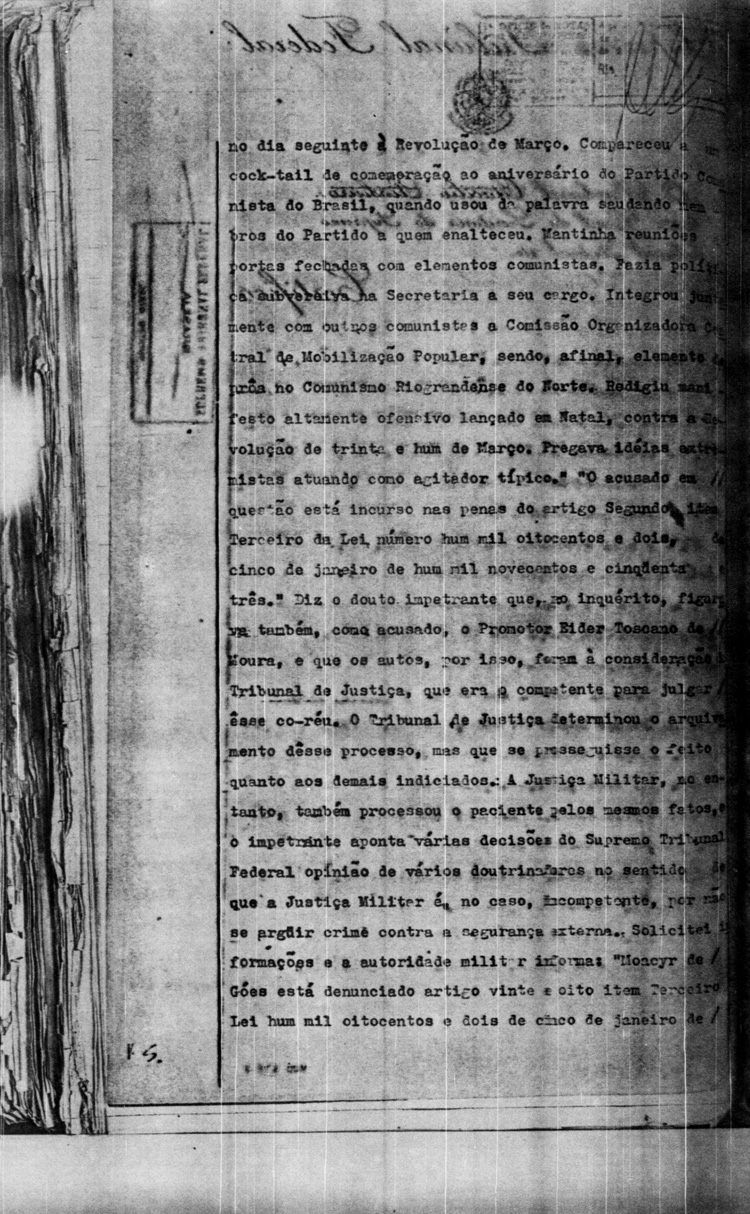 no dia seguinte à Revolução de Março. Compareceu a
cock-tail de comemoração ao aniversário do Partido
nista do Brasil, quando usou da palavra saudando mem
bros do Partido a quem enalteceu. Mantinha reuniões
portas fechadas com elementos comunistas. Fazia polít
ca subversiva na Secretaria a seu cargo. Integrou
mente com outros comunistas a Comissão Organizadora
tral de Mobilização Popular, sendo, afinal, elemento
prôa no Comunismo Riograndense do Norte. Redigiu mani
festo altamente ofensivo lançado em Natal, contra a
volução de trinta e hum de Março. Pregava idéias extre
mistas atuando como agitador típico." "O acusado em //
questão está incurso nas penas do artigo Segundo, item
Terceiro da Lei número hum mil oitocentos e dois, de
cinco de janeiro de hum mil novecentos e cinqüenta e
três." Diz o douto impetrante que, no inquérito, figura
va também, como acusado, o Promotor Eider Toscano de //
Moura, e que os autos, por isso, foram à consideração
Tribunal de Justiça, que era o competente para julgar /
êsse co-réu. O Tribunal de Justiça determinou o arquiva
mento dêsse processo, mas que se prosseguisse o feito
quanto aos demais indiciados. A Justiça Militar, no en-
tanto, também processou o paciente pelos mesmos fatos, e
o impetrante aponta várias decisões do Supremo Tribunal
Federal opinião de vários doutrinadores no sentido de
que a Justiça Militar é, no caso, incompetente, por não
se argüir crime contra a segurança externa. Solicitei
formações e a autoridade militar informa: "Moacyr de /
Góes está denunciado artigo vinte e oito item Terceiro
Lei hum mil oitocentos e dois de cinco de janeiro de /